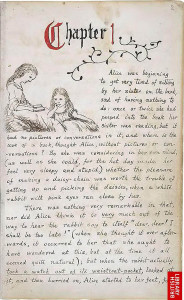 Chapter 1
Alice was beginning
to get very tired of sitting
by her sister on the bank,
and of having nothing to
do: once or twice she had
peeped into the book her
sister was reading, but it
had no pictures or conversations in it, and where is the
use of a book, thought Alice, without pictures or con-
versations? So she was considering in her own mind,
(as well as she could, for the hot day made her
feel very sleepy and stupid,) whether the pleasure
of making a daisy-chain was worth the trouble of
getting up and picking the daisies, when a white
rabbit with pink eyes ran close by her.
There was nothing very remarkable in that,
nor did Alice think it so very much out of the
way to hear the rabbit say to itself "dear, dear! I
shall be too late!" (when she thought it over after-
wards, it occurred to her that she ought to
have wondered at this, but at the time it all
seemed quite natural); but when the rabbit actually
took a watch out of its waistcoat-pocket, looked
it, and then hurried on, Alice started to her feet, for
LIBRARY